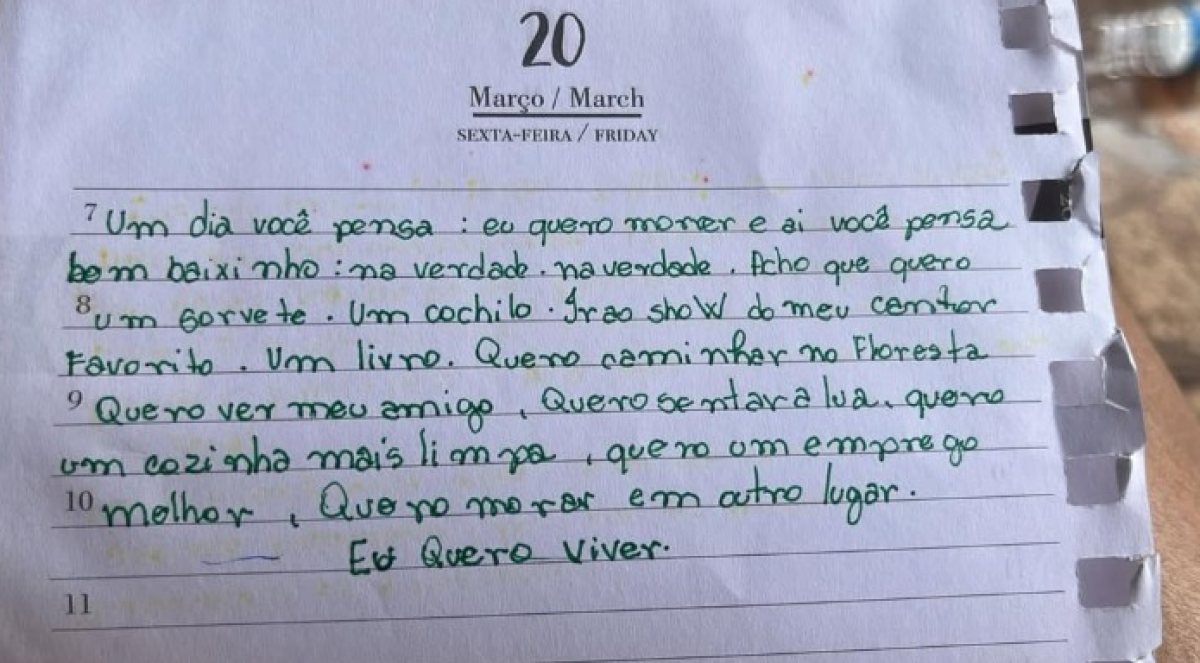 20
Março / March
SEXTA-FEIRA / FRIDAY
7 Um dia você pensa : eu quero morrer e ai você pensa
bem baixinho : na verdade . na verdade . Acho que quero
8 um sorvete . Um cochilo . Ir ao show do meu cantor
Favorito . Um livro . Quero caminhar na Floresta
9 Quero ver meu amigo , Quero sentar a lua , quero
um cozinha mais limpa , quero um emprego
10 melhor , Quero morar em outro lugar .
Eu Quero Viver .
11